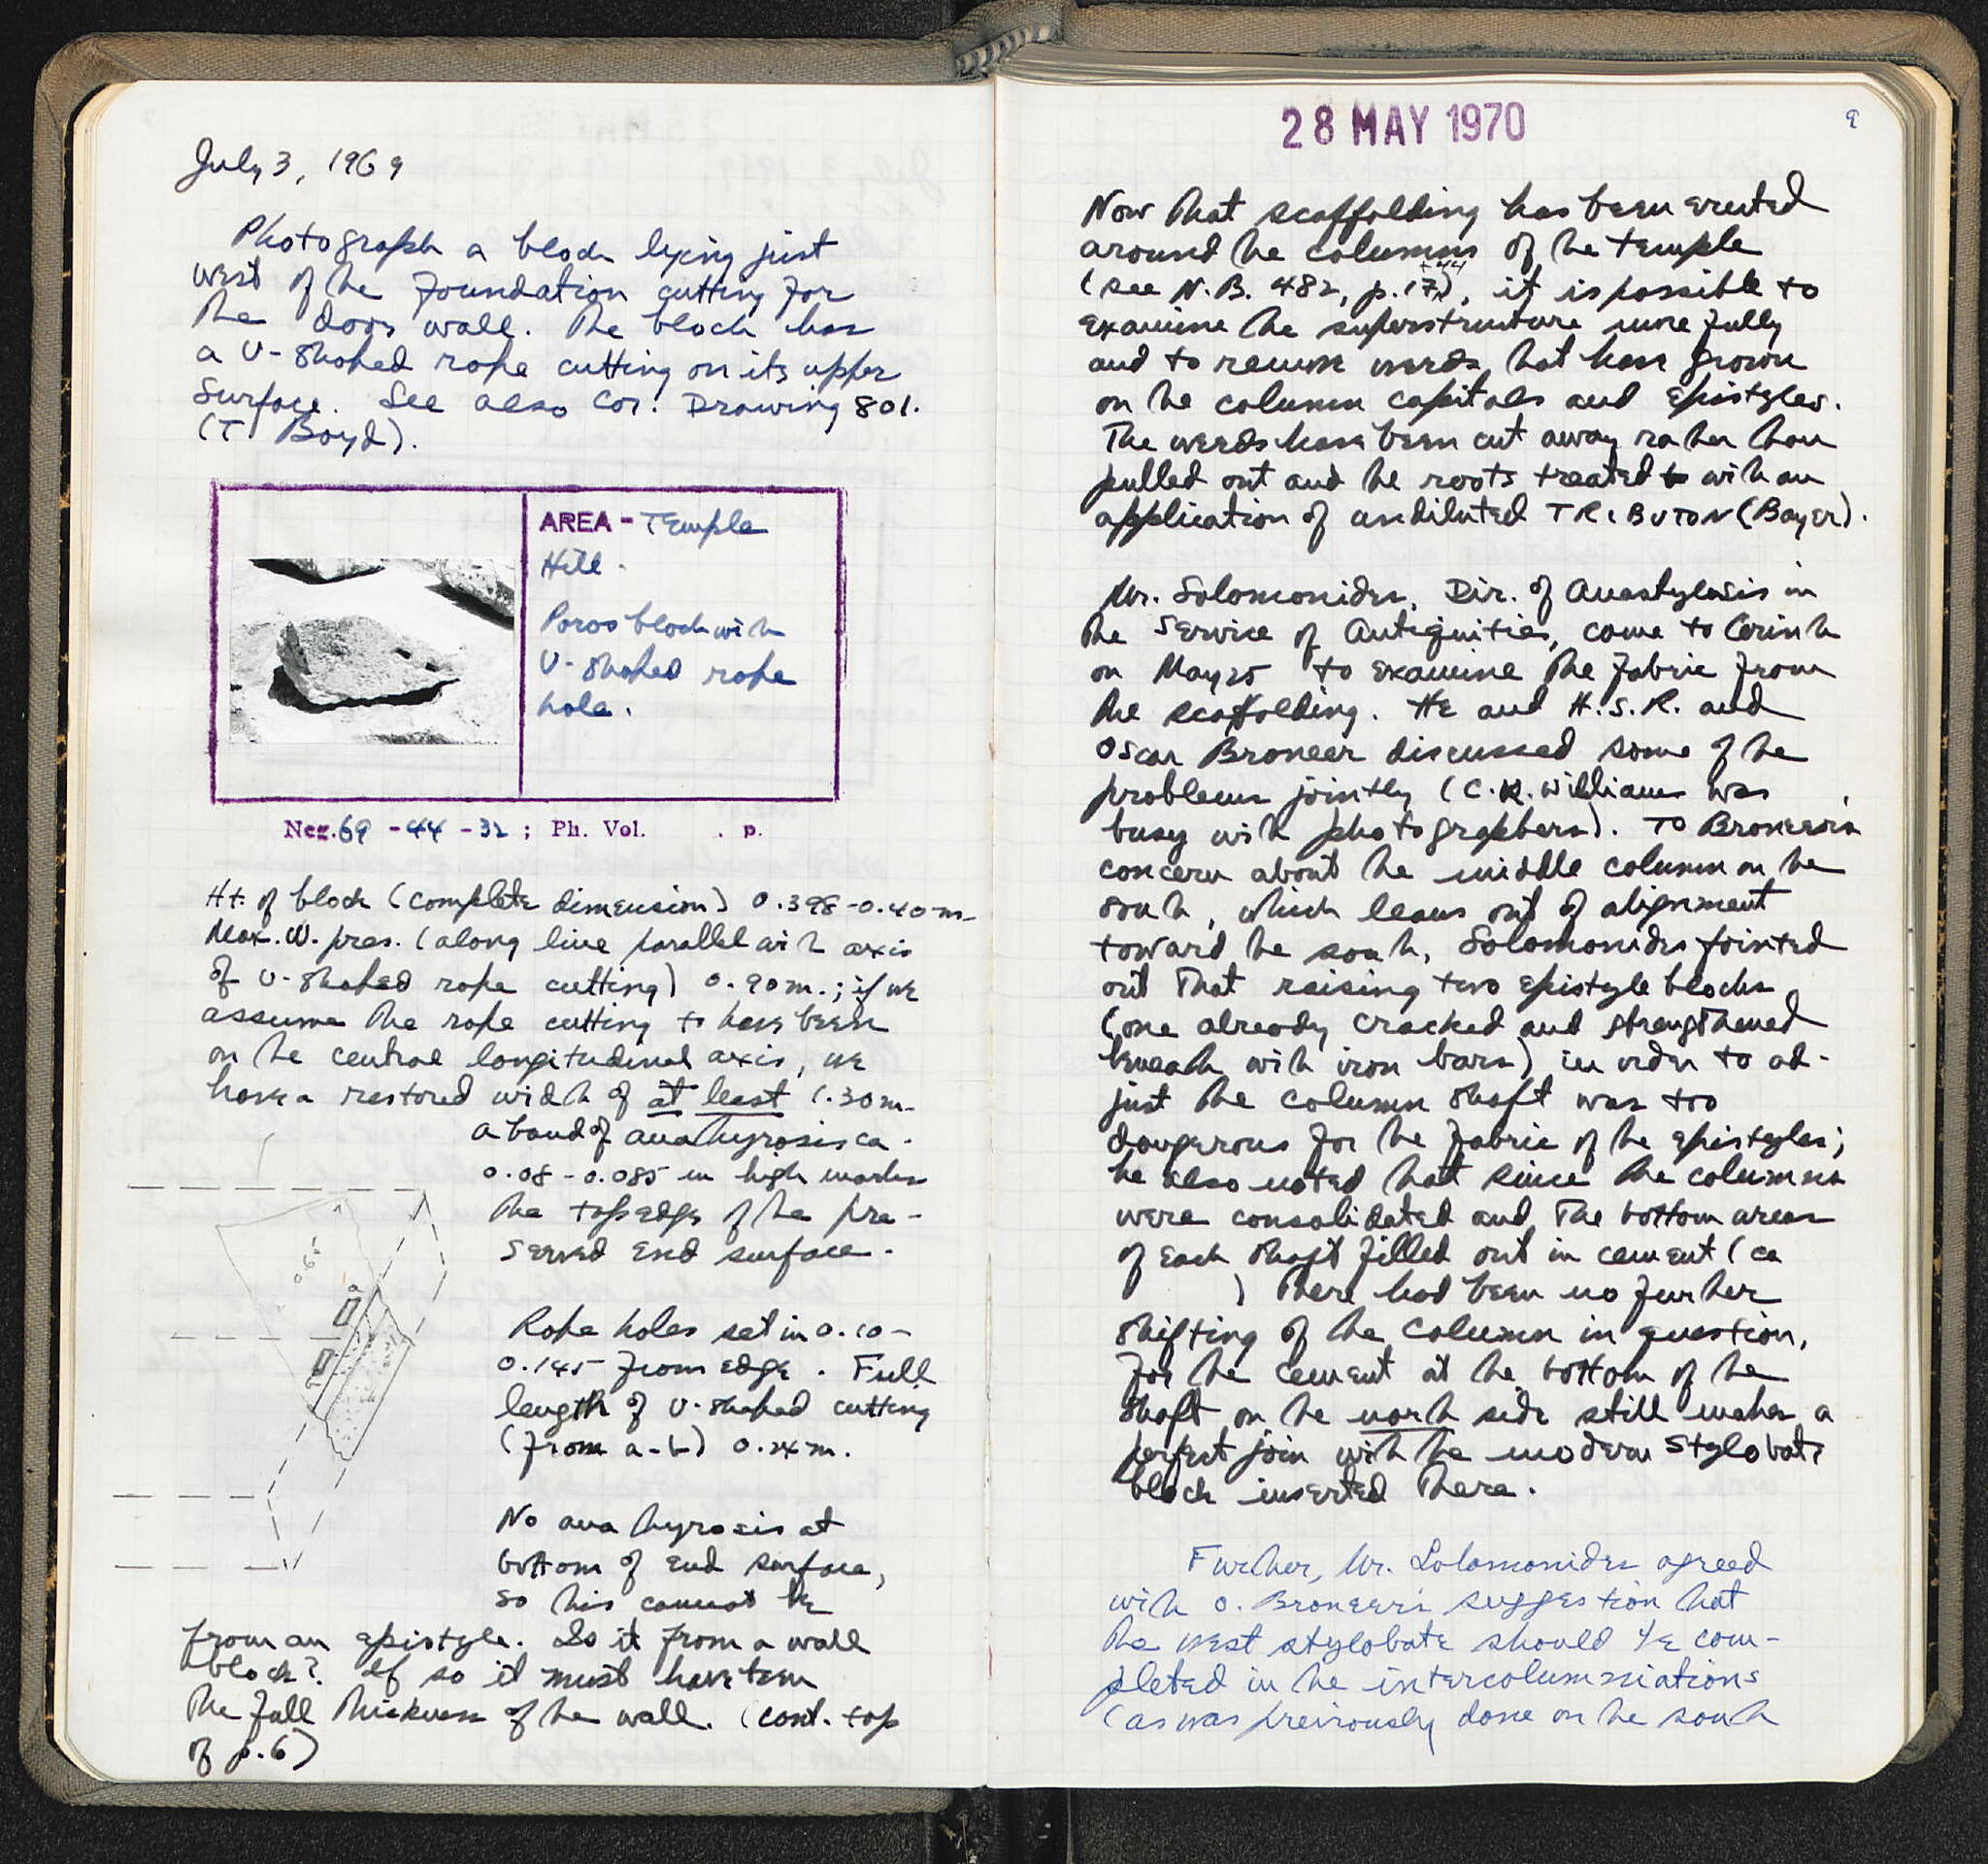 July 3, 1969
Photograph a block lying just
west of the foundation cutting for
the door wall. The block has
a U-shaped rope cutting on its upper
surface. See also Cor. Drawing 801.
(T. Boyd).
AREA - Temple
Hill.
Poros block with
U-shaped rope
hole.
Neg. 69 - 44 - 32 ; Ph. Vol. . p.
Ht. of block (complete dimension) 0.398-0.40 m.
Max. W. pres. (along line parallel with axis
of U-shaped rope cutting) 0.90 m.; if we
assume the rope cutting to have been
on the central longitudinal axis, we
have a restored width of at least 1.30 m.
a band of anathyrosis ca.
0.08 - 0.085 m high marks
the top edge of the pre-
served end surface.
0.65
a
b
Rope holes set in 0.10-
0.145 from edge. Full
length of U-shaped cutting
(from a-b) 0.24 m.
No anathyrosis at
bottom of end surface,
so this cannot be
from an epistyle. Is it from a wall
block? If so it must have been
the full thickness of the wall. (cont. top
of p. 6)
28 MAY 1970
9
Now that scaffolding has been erected
around the columns of the temple
(see N.B. 482, p. 17), it is possible to
examine the superstructure more fully
and to remove weeds that have grown
on the column capitals and epistyles.
The weeds have been cut away rather than
pulled out and the roots treated with an
application of undiluted TRIBUTON (Bayer).
Mr. Solomonides, Dir. of Anastylosis in
the Service of Antiquities, came to Corinth
on May 25 to examine the fabric from
the scaffolding. He and H.S.R. and
Oscar Broneer discussed some of the
problems jointly (C.K. Williams was
busy with photographers). To Broneer's
concern about the middle column on the
south, which leans out of alignment
toward the south, Solomonides pointed
out that raising two epistyle blocks
(one already cracked and strengthened
beneath with iron bars) in order to ad-
just the column shaft was too
dangerous for the fabric of the epistyles;
he also noted that since the columns
were consolidated and the bottom areas
of each shaft filled out in cement (ca
) there had been no further
shifting of the column in question,
for the cement at the bottom of the
shaft on the north side still makes a
perfect join with the modern stylobate
block inserted there.
Further, Mr. Solomonides agreed
with O. Broneer's suggestion that
the west stylobate should be com-
pleted in the intercolumniations
(as was previously done on the south